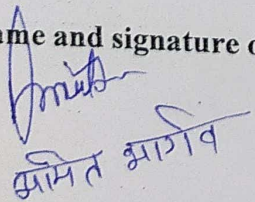 ame and signature o
Amit
अमित भार्गव